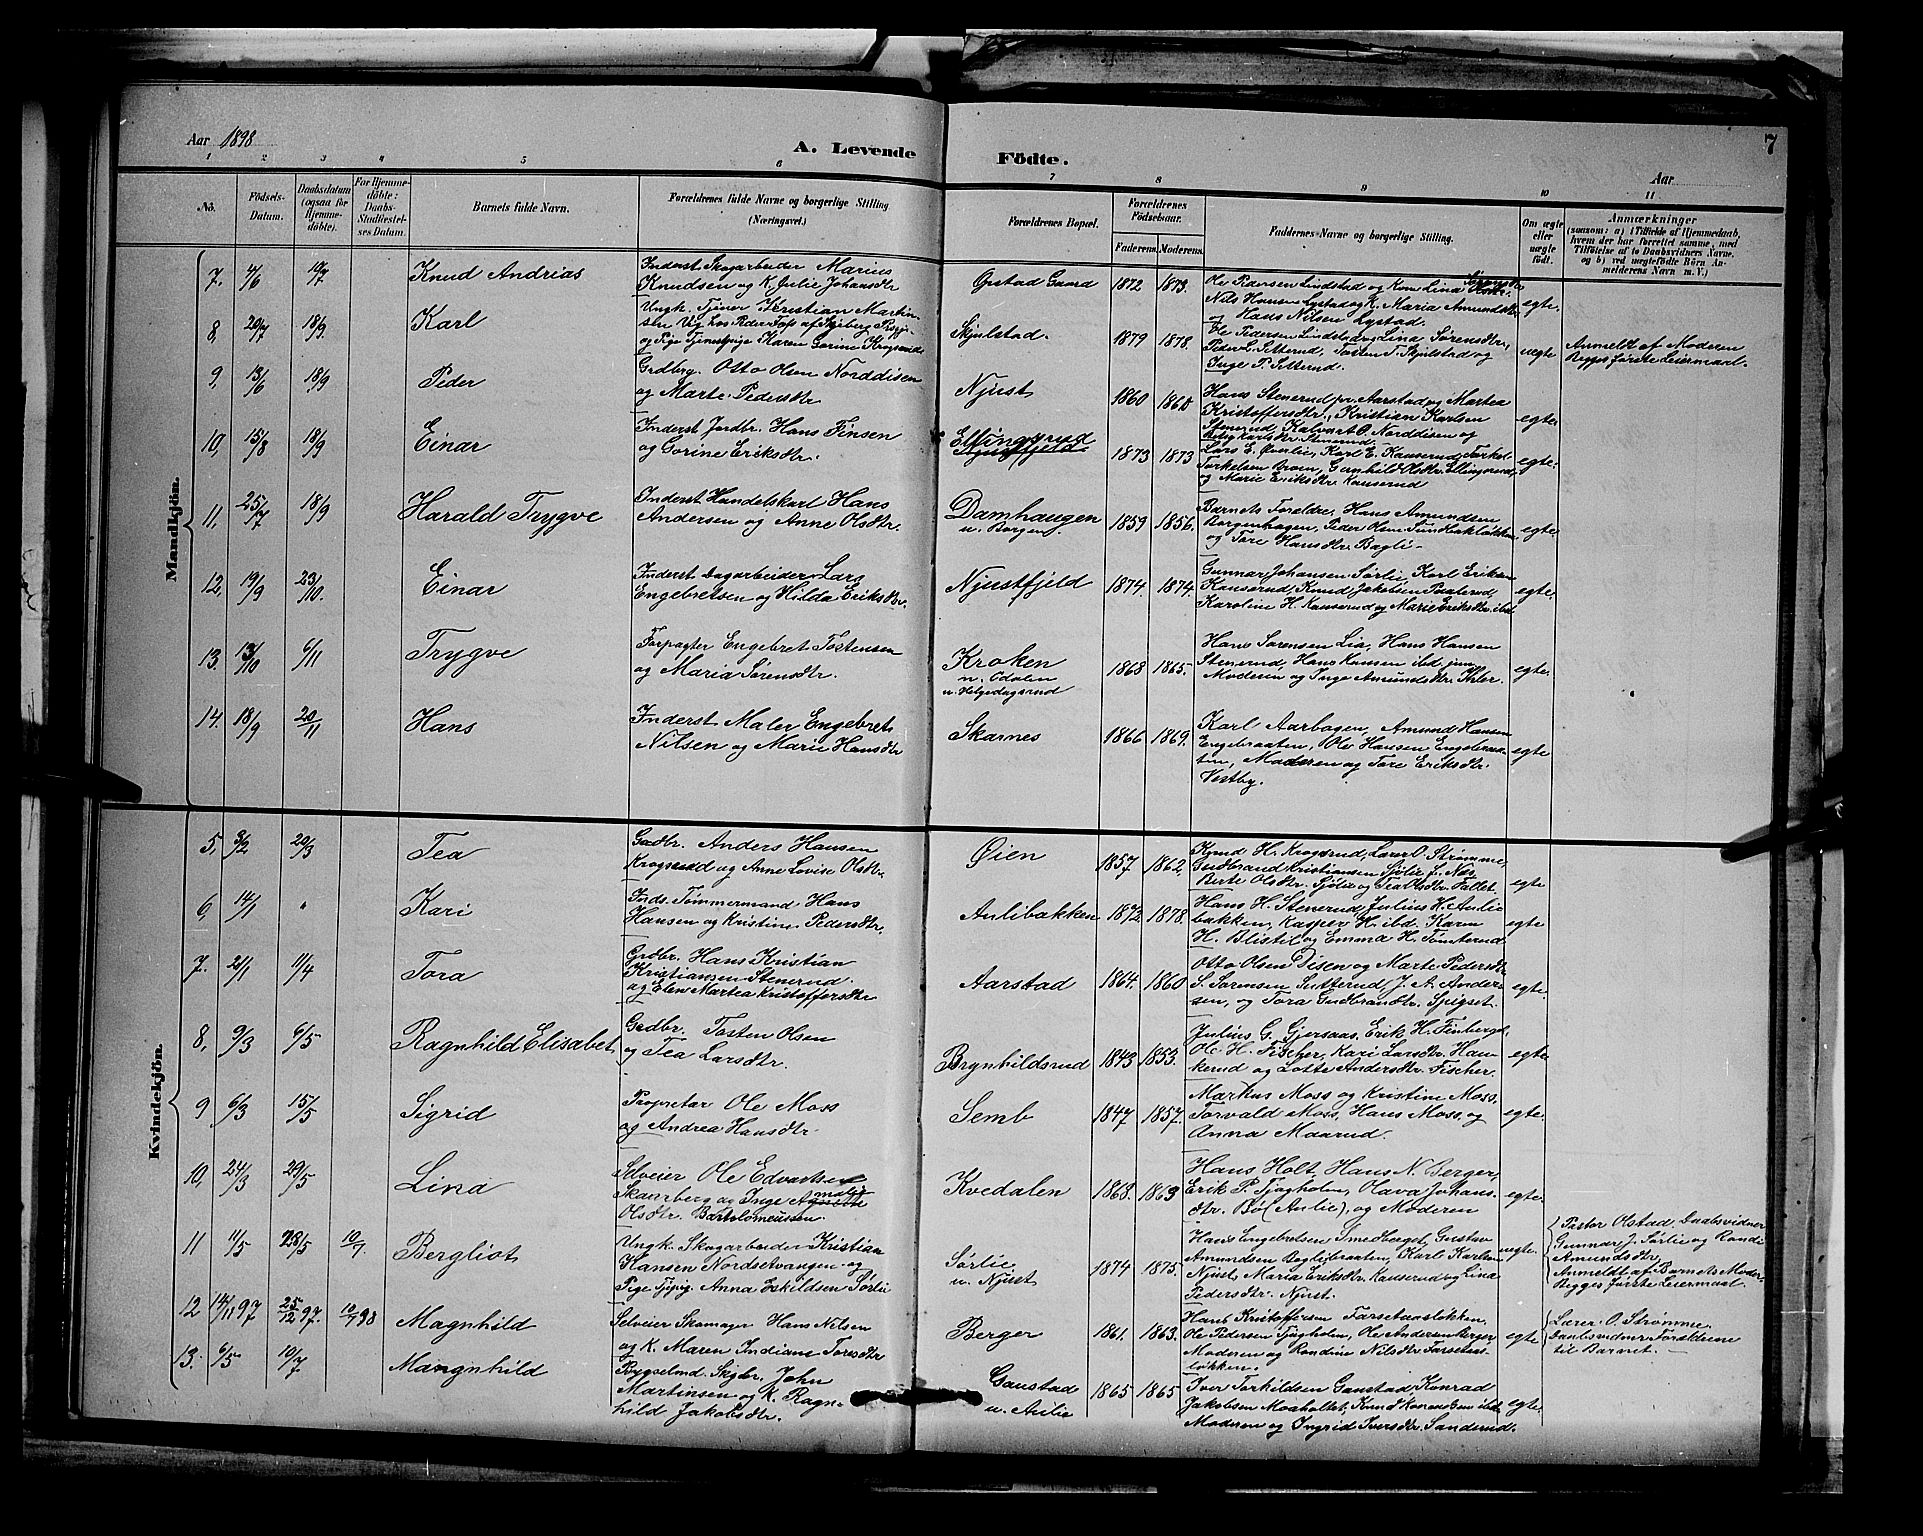 Aar 1898
A. Levende Födte.
7
Aar
1 2 3 4 5 6 7 8 9 10 11
No.
Födsels-Datum.
Daabsdatum (ogsaa for Hjemmedöbte).
For Hjemmedöbte: Daabs-Stadfæstelses Datum.
Barnets fulde Navn.
Forældrenes fulde Navne og borgerlige Stilling (Næringsvei.)
Forældrenes Bopæl.
Forældrenes Födselsaar.
Faderens. Moderens.
Faddernes Navne og borgerlige Stilling.
Om ægte eller uægte födt.
Anmærkninger
(saasom: a) i Tilfælde af Hjemmedaab,
hvem der har forrettet samme, med
Tilföielse af to Daabsvidners Navne.
og b) ved uægtefödte Börn An-
melderens Navn m. V.)
Mandkjön.
7. 4/6 10/7 Knud Andrias
Inderst Skogarbeider Marius
Knudsen og K. Julie Johansdtr
Opstad Gaard 1872 1873.
Ole Pedersen Lindstad og Kone Lina
Nils Hansen Lystad og K. Maria Amundsdtr
og Hans Nilsen Lystad.
egte.
8, 20/7 18/9. Karl
Ungk. Tjener Kristian Martin-
sen
og Pige Tjenestpige Karen Gorine Krogsrud
Skjulstad. 1879 1878.
Ole Pedersen Lindstad og Lina Sörensdtr,
Peder L. Setterud, Tosten T. Skjulstad og
Inge P. Setterud.
uegte
Anmeldt af Moderen
Begges förste Leiermaal.
9, 13/6 18/9 Peder
Grdbrg. Otto Olsen Norddisen
og Marte Pedersdtr
Njust 1860 1860
Hans Stenerud pr. Aarstad og Martea
Kristoffersdtr., Kristian Karlsen
Stenerud, Kalvart O. Norddisen og
Karlsdtr. Stenerud
egte
10, 15/8 18/9 Einar
Inderst Jordbr. Hans Finsen
og Gorine Eriksdtr.
Ellingsrud
1873 1873
Lars E. Ourlie, Karl E. Kauserud, Torkel
Torkelsen Broen, Gunhild Olsdtr Ellingsrud,
og Marie Eriksdtr Kauserud
egte.
11, 25/7 18/9 Harald Trygve
Inderst Handelskarl Hans
Andersen og Anne Olsdtr.
Damhaugen
u. Borgen
1859 1856.
Barnets Foreldre, Hans Amundsen
Borgenhagen, Peder Olsen Tun Hakløkken
og Tore Hansdtr Bagli-
egte
12, 19/9 23/10. Einar
Inderst Dagarbeider Lars
Engebretsen og Hilda Eriksdtr.
Njustfjeld 1874. 1874.
Gunnar Johansen Sørlie, Karl Eriksen
Kauserud, Knud Jakobsen Paalerud,
Karoline H. Kauserud og Marie Eriksdtr ibd
egte.
13. 13/10 6/11 Trygve
Forpagter Engebret Tostensen
og Maria Sørensdtr.
Kroken
n. Odalen
u. Helgedagsrud
1868 1865.
Hans Sørensen Lia, Hans Hansen
Stenerud, Hans Hansen ibd. jun.
Moderen og Inge Amundsdtr Ihler.
egte.
14. 18/9 20/11 Hans
Inderst Maler Engebret
Nilsen og Marie Hansdtr
Skarnes 1866 1869.
Karl Aarbogen, Amund Hansen
Engebraaten, Ole Hansen Engebraa-
ten, Moderen og Tore Eriksdtr.
Vestby.
egte
Kvindekjön.
5, 3/2 20/3 Tea
Grdbr. Anders Hansen
Krogsrud og Anne Lovise Olsdtr.
Øien 1857 1862,
Knud H. Krogsrud, Lærer O. Strømme,
Gudbrand Kristiansen Sjölie f. Nes
Berte Olsdtr. Sjölie og Tea Olsdtr. Fallet.
egte
6, 14/1 " Kari
Inds. Tømmermand Hans
Hansen og Kristine Pedersdtr.
Aulibakken 1872 1878.
Hans H. Stenerud, Julius H. Aulie
bakken, Kasper H. ibd. Karen
H. Blistil og Emma H. Tomterud
egte
7. 21/1 11/4 Tora
Grdbr. Hans Kristian
Kristiansen Stenerud
og Elen Martea Kristoffersdtr
Aarstad 1864. 1860
Otto Olsen Disen og Marte Pedersdtr
S. Sørensen Sutterud, J. A. Ander-
sen, og Tora Gudbrandsdtr. Spigset.
egte.
8, 9/3 6/5 Ragnhild Elisabet
Grdbr. Tosten Olsen
og Tea Larsdtr.
Brynhildsrud 1843 1853.
Julius G. Gjersaas, Erik H. Finberget,
Ole H. Fischer, Kari Larsdtr. Hau-
kerud og Lotte Andersdtr. Fischer.
egte
9 6/3 15/5 Sigrid
Propretær Ole Moss
og Andrea Hansdtr.
Semb 1847 1857.
Markus Moss og Kristine Moss.
Torvald Moss, Hans Moss, og
Anna Maarud.
egte.
10, 24/3 29/5 Lina
Selveier Ole Edvartsen
Skaarberg og Inge
Olsdtr. Bartolomeussen.
Kvedalen 1868. 1863
Hans Holt, Hans N. Berger,
Erik P. Tjøgholen, Olava Johans-
dtr. Bø (Aulie), og Moderen
egte.
11 11/5 28/5 10/7. Bergliot
Ungk. Skogarbeider Kristian
Hansen Nordsetvangen og
Pige Anna Eskildsen Sørlie
Sørlie
u. Njust
1874 1875.
Hans Engebretsen Smedberget, Gustav
Amundsen Beglibraaten, Karl Karlsen
Njust, Maria Eriksdtr. Kauserud og Lina
Pedersdtr. Njust.
uegte.
Pastor Olstad, Daabsvidner
Gunnar J. Sørlie og Randi
Amundsdtr.
Anmeldt af Barnets Moder
Begges förste Leiermaal.
12 14/11 97 25/12 97. 10/7 98 Magnhild
Selveier Skomager Hans Nilsen
og K. Maren Indiane Toresdtr
Berger 1861. 1863.
Hans Kristoffersen Farsetøosløkken,
Ole Pedersen Tjøgholen, Ole Andersen Berger
Moderen og Randine Nilsdtr Farsetøos-
løkken.
egte
Lærer O. Strømme
Daabsvidner Forældrene
til Barnet.
13. 6/5 10/7 Mangnhild
Bygselmd. Skgbr. John
Martinsen og K. Ragn-
hild Jakobsdtr.
Gaustad
u. Aulie
1865 1865
Iver Torkildsen Gaustad, Konrad
Jakobsen Moahallet, Knud Konradsen ibd.
Moderen og Ingrid Iversdtr Sanderud.
egte.